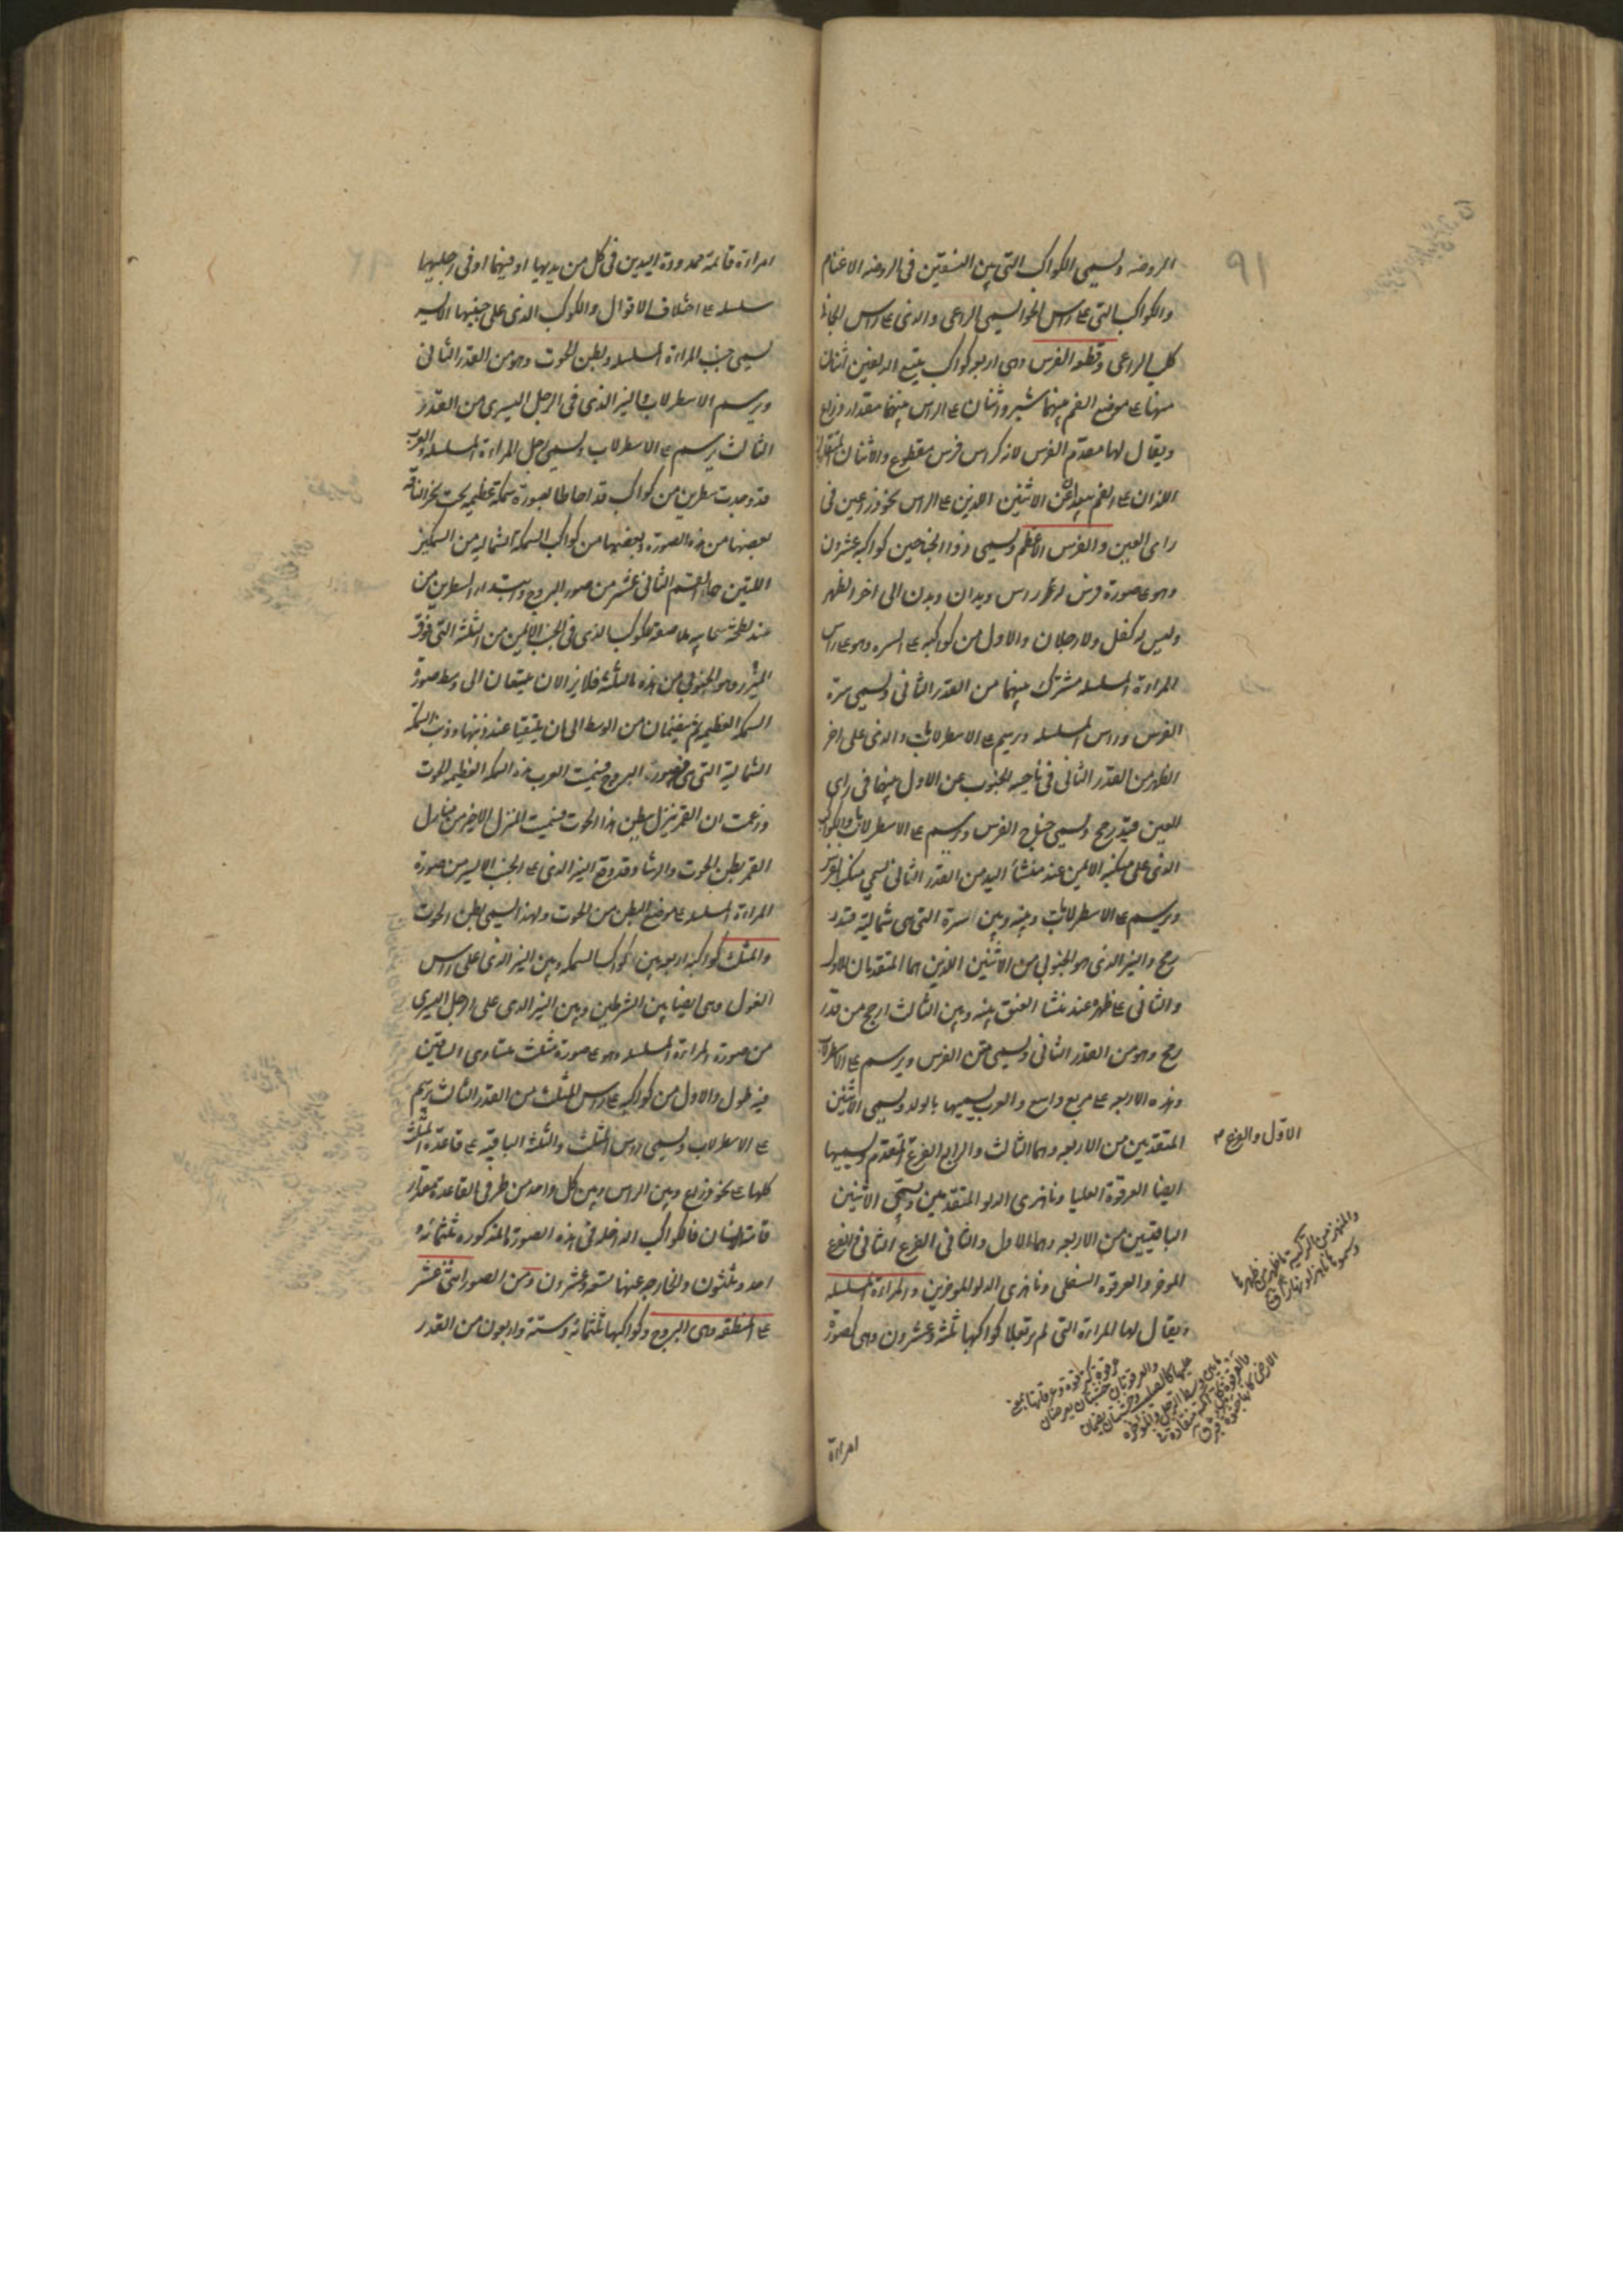 الروضه ويسمى الكواكب التى بين النسقين فى الروضه الاغنام
والكواكب التى ع راس الحوا يسمى الراعى والذى ع راس الجاثى
كلب الراعى وقطعه الفرس وهى اربعه كواكب يتبع الدلفين اثنان
منها ع موضع الفم بينهما شبر واثنان ع الراس بينهما مقدار ذراع
ويقال لها مقدم الفرس لانه كراس فرس مقطوع والاثنان
اللذان ع الفم بعيدان عن الاثنين الذين ع الراس نحو ذراعين فى
راى العين والفرس الاعظم ويسمى ذو الجناحين كواكبه عشرون
وهو ع صورة فرس له راس ويدان وبدن الى اخر الظهر
وليس له كفل ولا رجلان والاول من كواكبه ع السره وهو ع راس
المراءة المسلسله مشترك بينهما من القدر الثانى ويسمى سرة
الفرس وراس المسلسله ويرسم ع الاسطرلاب والذى على اخر
الظهر من القدر الثانى فى ناحيه الجنوب عن الاول بينهما فى راى
العين قيد رمح ويسمى جناح الفرس ويرسم ع الاسطرلاب والكوكب
الذى على منكبه الايمن عند منشأ اليد من القدر الثانى يسمى منكب الفرس
ويرسم ع الاسطرلاب وبينه وبين السرة التى هى شمالية قيد
رمح والنير الذى هو الجنوبى من الاثنين الذين هما المتقدمان للاول
والثانى ع ظهره عند منشا العنق بينه وبين الثالث ارجح من قدر
رمح وهو من القدر الثانى ويسمى متن الفرس ويرسم ع الاسطرلاب
وهذه الاربعه ع مربع واسع والعرب يسميها بالدلو ويسمى الاثنين
المتقدمين من الاربعه وهما الثالث والرابع الفرغ المقدم ويسميها
الاول والفرغ
ايضا العرقوة العليا وناهزى الدلو المتقدمين ويسمى الاثنين
الباقيين من الاربعه وهما الاول والثانى الفرغ الثانى والفرغ
الموخر والعرقوه السفلى وناهزى الدلو الموخرين والمراءة المسلسله
ويقال لها المراءة التى لم تر بعلا كواكبها ثلثه وعشرون وهى كصورة
امراءة
امراءة قائمة ممدودة اليدين فى كل من يديها او فيهما او فى رجليها
سلسله ع اختلاف الاقوال والكوكب الذى على جنبها الايسر
يسمى جنب المراءة المسلسله وبطن الحوت وهو من القدر الثانى
ويرسم الاسطرلاب والنير الذى فى الرجل اليسرى من القدر
الثالث يرسم ع الاسطرلاب ويسمى رجل المراءة المسلسله والعرب
قد وجدت سطرين من كواكب قد احاطا بصورة سمكة عظيمه تحت
بعضها من هذه الصورة وبعضها من كواكب السمكة الشماليه من السمكتين
اللتين هما القسم الثانى عشر من صور البروج وابتداء السطرين من
عند لطخه سحابيه ملاصقه لكوكب الذى فى الجنب الايمن من الثلثه التى فوق
الميزر وهو الجنوبى من هذه الثلثه فلا يزالان يتسعان الى وسط صورة
السمكه العظيمه ثم ينضمان من الوسط الى ان يلتقيا عند ذنبها وذنب السمكة
الشمالية التى هى من صورة البروج فسمت العرب هذه السمكه العظيمه الحوت
وزعمت ان القمر ينزل ببطن هذا الحوت فسميت المنزل الاخير من منازل
القمر بطن الحوت والرشا وقد وقع النير الذى ع الجنب الايسر من صورة
المراءة المسلسله ع موضع البطن من الحوت ولهذا يسمى بطن الحوت
والمثلث كواكبه اربعه بين كواكب السمكه وبين النير الذى على راس
الغول وهى ايضا بين الشرطين وبين النير الذى على الرجل اليسرى
من صورة المراءة المسلسله وهو ع صورة مثلث متساوى الساقين
فيه طول والاول من كواكبه ع راس المثلث من القدر الثالث يرسم
ع الاسطرلاب ويسمى راس المثلث والثلثه الباقية ع قاعدة المثلث
كلها ع نحو ذراع وبين الراس وبين كل واحد من طرفى القاعدة مقدار
قامة انسان فالكواكب الداخله فى هذه الصور المذكوره ثلثمائه و
احد وثلثون والخارجه عنها سته وعشرون ومن الصور اثنى عشر
ع المنطقه وهى البروج وكواكبها ثلثمائه وستة واربعون من القدر